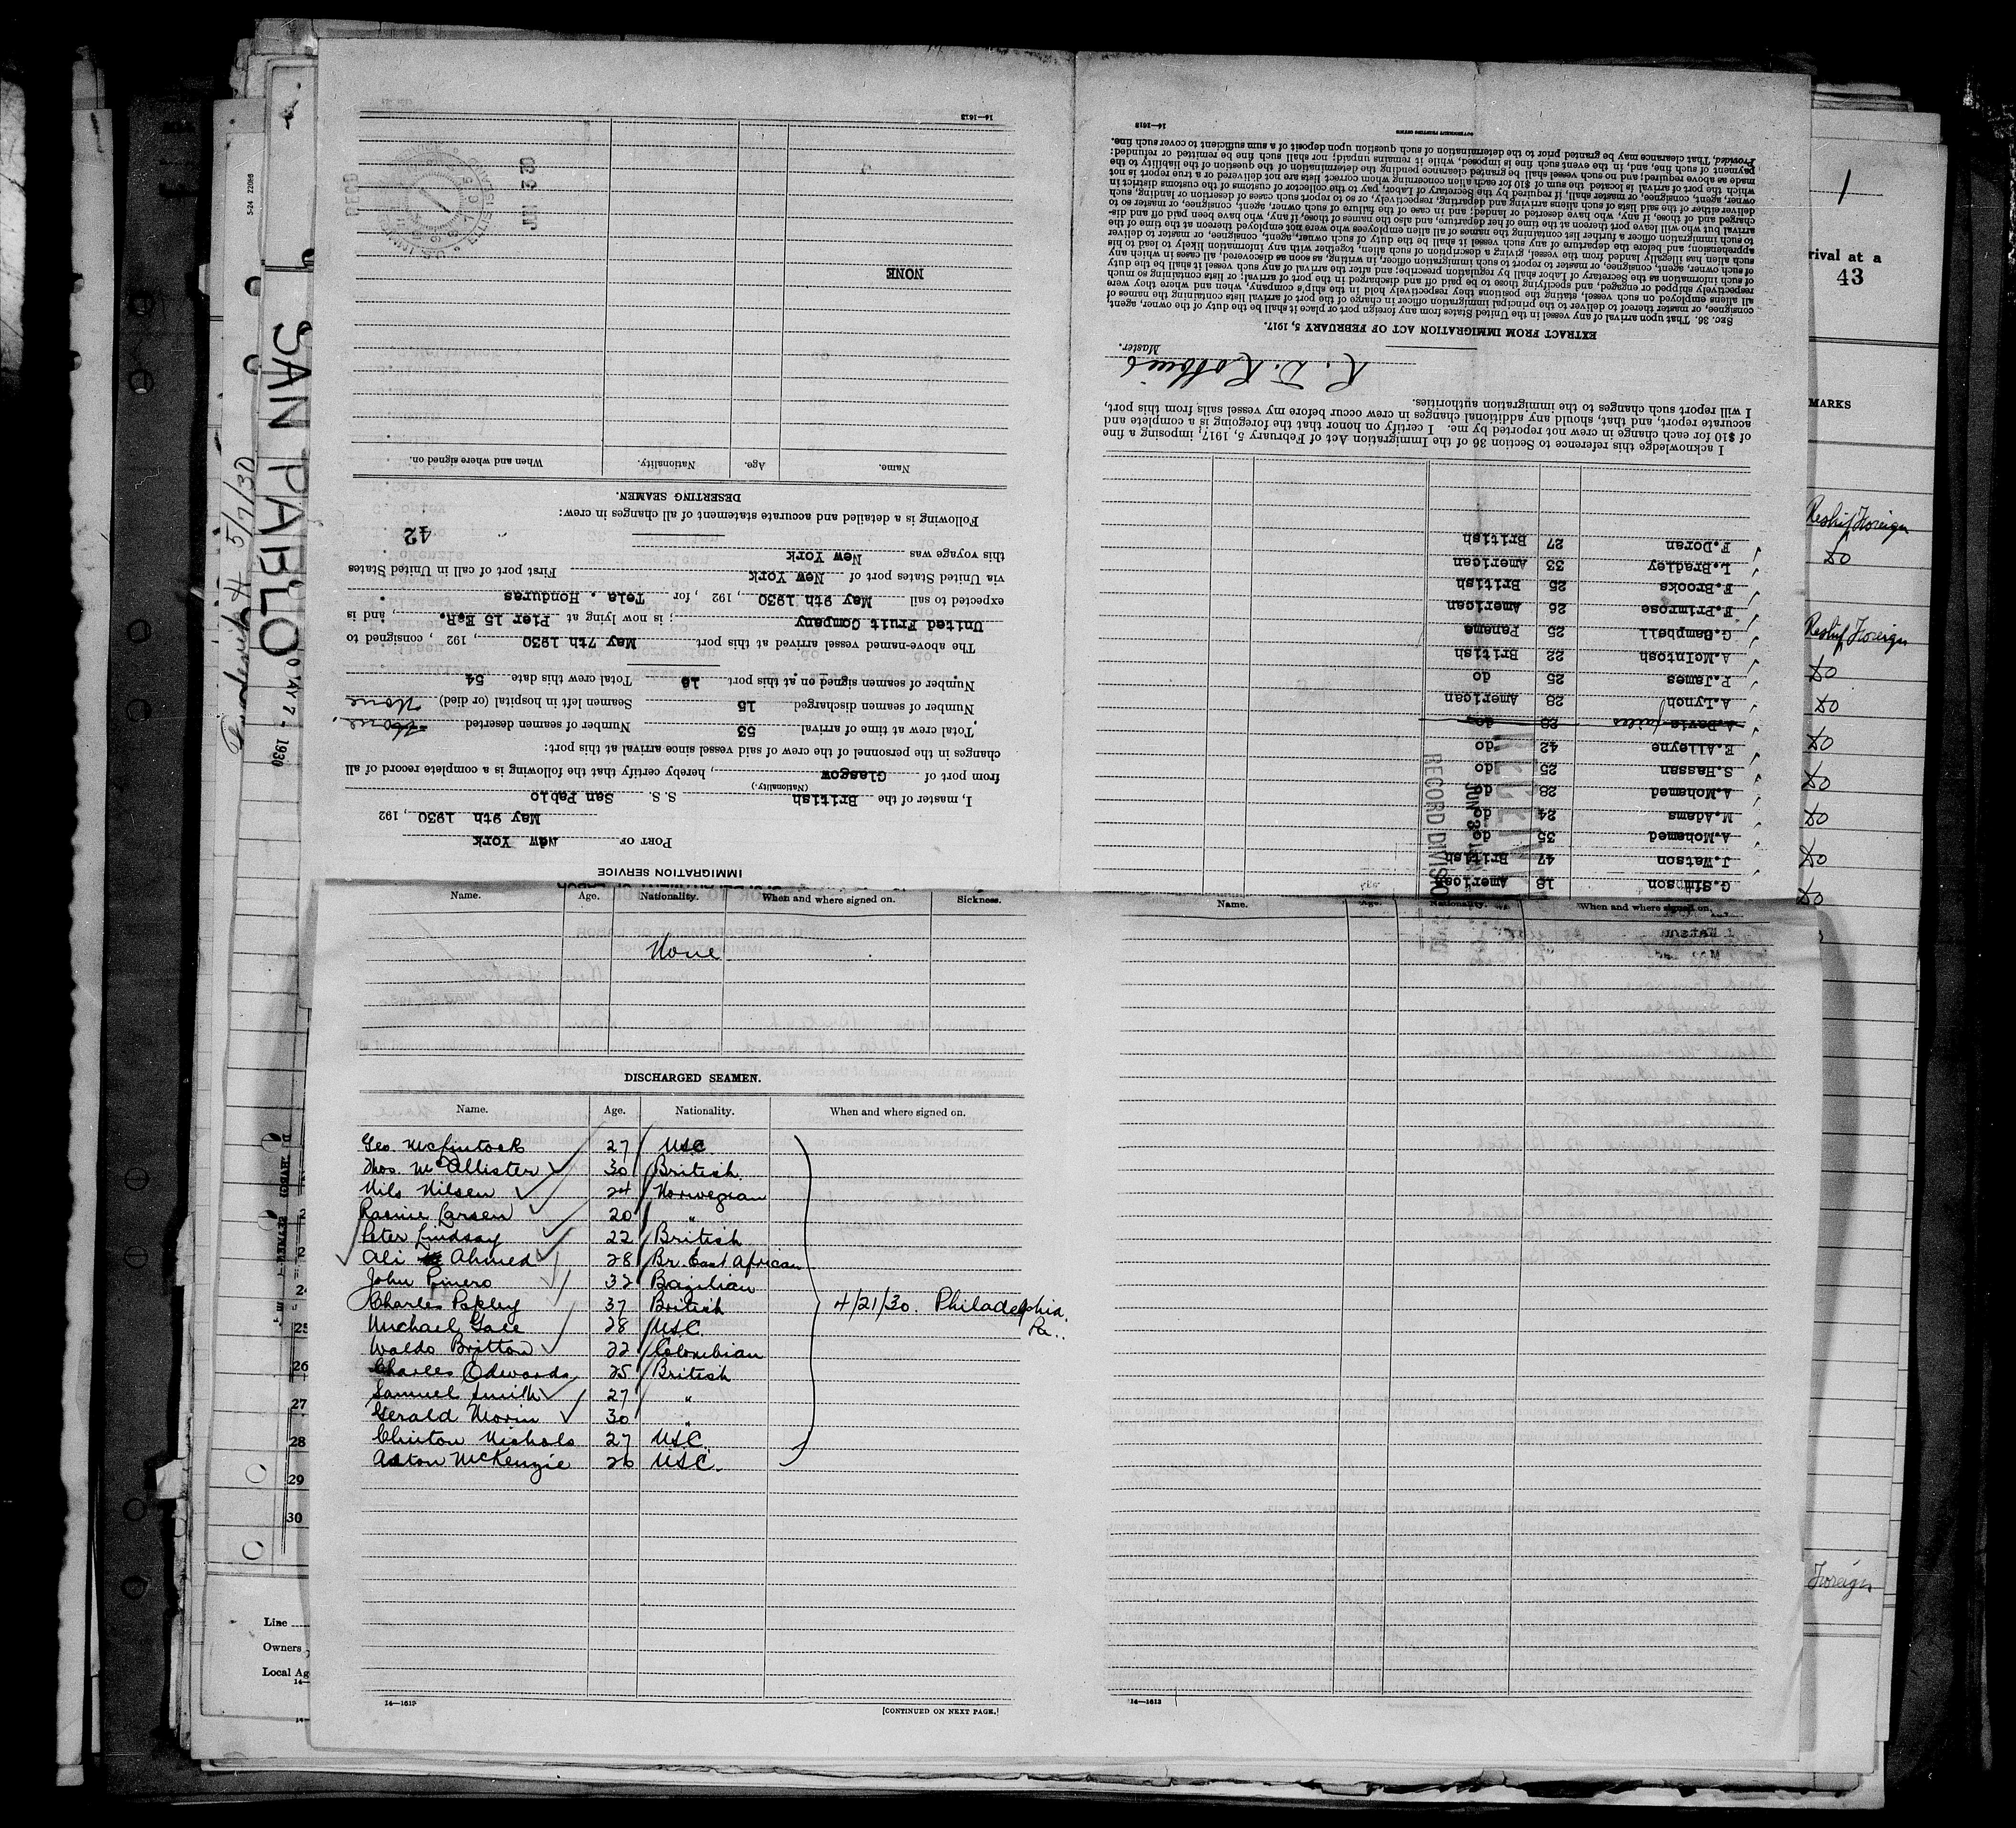 SAN PABLO
5/7/30
MAY 7 - 1930
5-24 22068
1
rival at a
43
MARKS
Reship Foreign
Do
Reship Foreign
Do
Do
Do
Do
Do
Do
Do
Foreign
IMMIGRATION SERVICE
PORT OF New York
May 9th 1930, 192
I, master of the British S. S. San Pablo
(Nationality.)
from port of Glasgow, hereby certify that the following is a complete record of all
changes in the personnel of the crew of said vessel since arrival at this port:
Total crew at time of arrival 53 Number of seamen deserted None
Number of seamen discharged 15 Seamen left in hospital (or died) None
Number of seamen signed on at this port 16 Total crew this date 54
The above-named vessel arrived at this port May 7th 1930, 192 , consigned to
United Fruit Company; is now lying at Pier 15 E.R., and is
expected to sail May 9th 1930, 192 , for Tela . Honduras
via United States port of New York First port of call in United States
this voyage was New York
42
Following is a detailed and accurate statement of all changes in crew:
DESERTING SEAMEN.
Name. Age. Nationality. When and where signed on.
NONE
JUN 3 30
14—1613
G.Simpson 18 American
J.Watson 47 British
A.Mohamed 35 do
M.Adams 24 do
A.Mohamed 28 do
S.Hassan 25 do
E.Alleyne 42 do
A.Davis failed 28 do
A.Lynch 28 American
P.James 25 do
A.McIntosh 22 British
G.Campbell 25 Panama
F.Primrose 26 American
F.Brooks 25 British
L.Bradley 33 American
F.Doran 27 British
RECORD DIVISION
I acknowledge this reference to Section 36 of the Immigration Act of February 5, 1917, imposing a fine
of $10 for each change in crew not reported by me. I certify on honor that the foregoing is a complete and
accurate report, and that, should any additional changes in crew occur before my vessel sails from this port,
I will report such changes to the immigration authorities.
Master.
EXTRACT FROM IMMIGRATION ACT OF FEBRUARY 5, 1917.
SEC. 36. That upon arrival of any vessel in the United States from any foreign port or place it shall be the duty of the owner, agent,
consignee, or master thereof to deliver to the principal immigration officer in charge of the port of arrival lists containing the names of
all aliens employed on such vessel, stating the positions they respectively hold in the ship's company, when and where they were
respectively shipped or engaged, and specifying those to be paid off and discharged in the port of arrival; or lists containing so much
of such information as the Secretary of Labor shall by regulation prescribe; and after the arrival of any such vessel it shall be the duty
of such owner, agent, consignee, or master to report to such immigration officer, in writing, as soon as discovered, all cases in which any
such alien has illegally landed from the vessel, giving a description of such alien, together with any information likely to lead to his
apprehension; and before the departure of any such vessel it shall be the duty of such owner, agent, consignee, or master to deliver
to such immigration officer a further list containing the names of all alien employees who were not employed thereon at the time of the
arrival but who will leave port thereon at the time of her departure, and also the names of those, if any, who have been paid off and dis-
charged and of those, if any, who have deserted or landed; and in case of the failure of such owner, agent, consignee, or master so to
deliver either of the said lists of such aliens arriving and departing, respectively, or so to report such cases of desertion or landing, such
owner, agent, consignee, or master shall, if required by the Secretary of Labor, pay to the collector of customs of the customs district in
which the port of arrival is located the sum of $10 for each alien concerning whom correct lists are not delivered or a true report is not
made as above required; and no such vessel shall be granted clearance pending the determination of the question of the liability to the
payment of such fine, and, in the event such fine is imposed, while it remains unpaid; nor shall such fine be remitted or refunded:
Provided, That clearance may be granted prior to the determination of such question upon deposit of a sum sufficient to cover such fine.
GOVERNMENT PRINTING OFFICE
14—1613
Name. Age. Nationality. When and where signed on. Sickness.
None
DISCHARGED SEAMEN.
Name. Age. Nationality. When and where signed on.
Geo. McClintock 27 USC
Thos. McAllister 30 British
Nils Nilsen 24 Norwegian
Larsen 20 "
Peter Lindsay 22 British
Ali Ahmed 28 Br. East African
John Pinero 32 Bazilian
Charles Papley 37 British
Michael Gale 28 USC
Waldo Britton 22 Colombian
Charles Edwards 25 British
Samuel Smith 27 "
Gerald Morin 30 "
Clinton Nichols 27 USC.
Aston McKenzie 26 USC.
4/21/30. Philadelphia.
Pa..
14—1613
[CONTINUED ON NEXT PAGE.]
Name. Age. Nationality. When and where signed on.
14—1613
25
26
27
28
29
30
Line
Owners
Local Ag